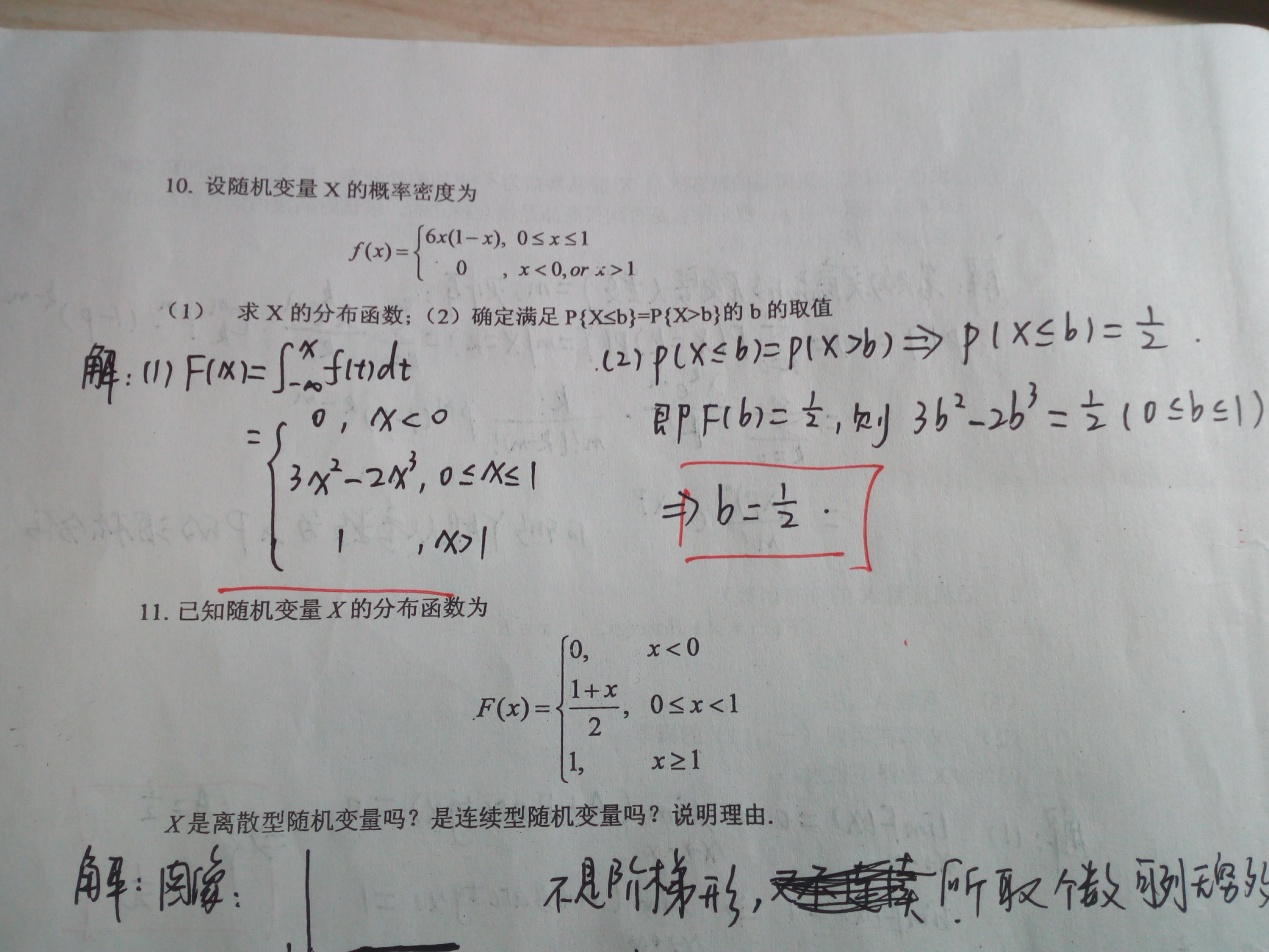 10. 设随机变量 X 的概率密度为
f(x)={6x(1−x), 0≤x≤1
0 , x<0,or x>1
（1） 求 X 的分布函数;（2）确定满足 P{X≤b}=P{X>b}的 b 的取值
解: (1) F(x)=∫_{-∞}^{x} f(t)dt
={0, x<0
3x²−2x³, 0≤x≤1
1 , x>1
(2) P(X≤b)=P(X>b) ⇒ P(X≤b)=1/2 .
即F(b)=1/2, 则 3b²−2b³=1/2 (0≤b≤1)
⇒ b=1/2 .
11. 已知随机变量 X 的分布函数为
F(x)={0, x<0
(1+x)/2, 0≤x<1
1, x≥1
X 是离散型随机变量吗？是连续型随机变量吗？说明理由.
解: 图像:
不是阶梯形, 所取个数可列无穷